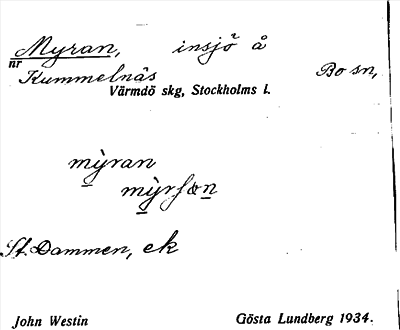 Myran, insjö å
nr Kummelnäs Bo sn,
Värmdö skg, Stockholms l.
mỳran
mỳrsøn
St. Dammen, ek
John Westin Gösta Lundberg 1934.